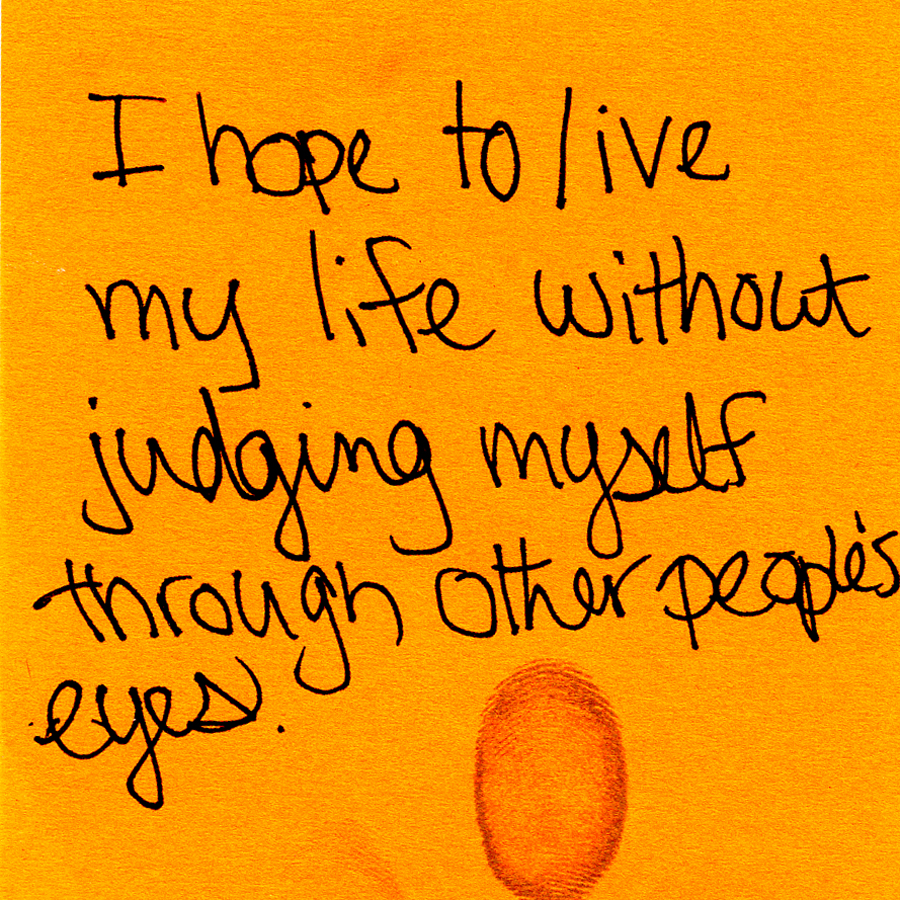 I hope to live
my life without
judging myself
through other people's
eyes.